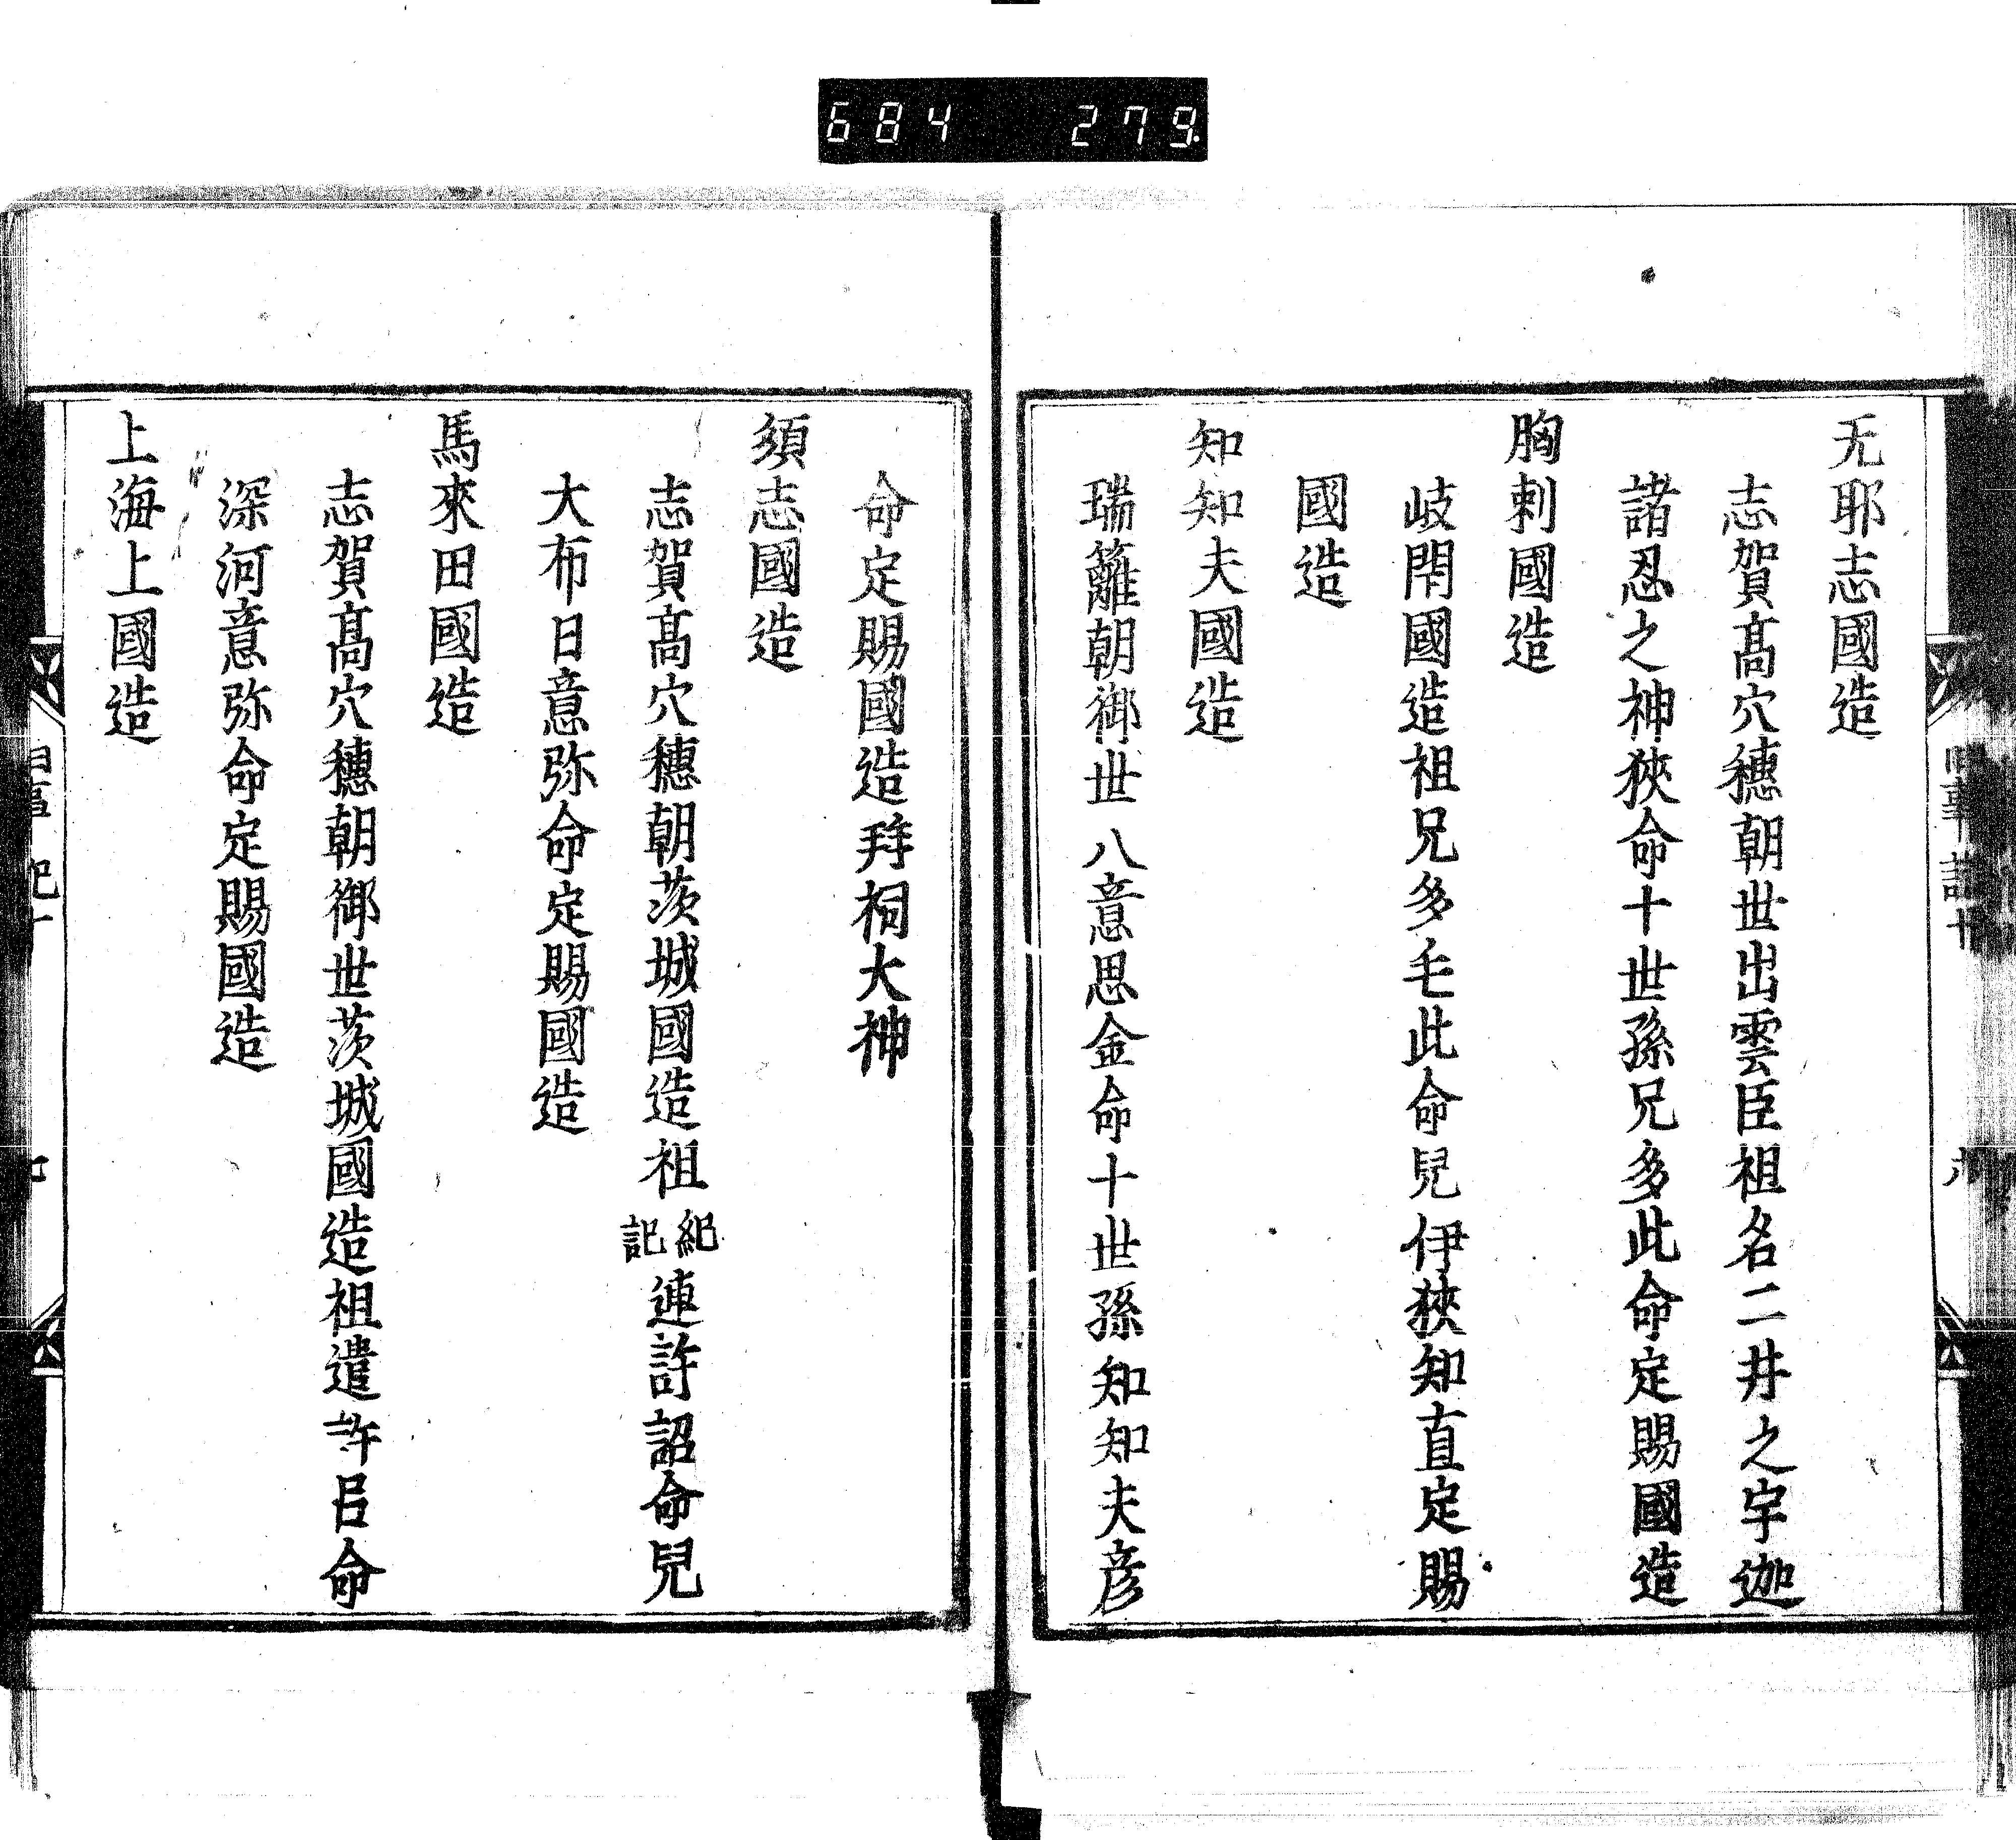 684 279
无耶志國造
志賀髙穴穗朝世出雲臣祖名二井之宇迦
諸忍之神狹命十世孫兄多此命定賜國造
胸刺國造
岐閇國造祖兄多毛此命兒伊狹知直定賜
國造
知知夫國造
瑞籬朝御世八意思金命十世孫知知夫彦
命定賜國造拜祠大神
須志國造
志賀髙穴穗朝茨城國造祖紀記連許詔命兒
大布日意弥命定賜國造
馬來田國造
志賀髙穴穗朝御世茨城國造祖遣許呂命
深河意弥命定賜國造
上海上國造